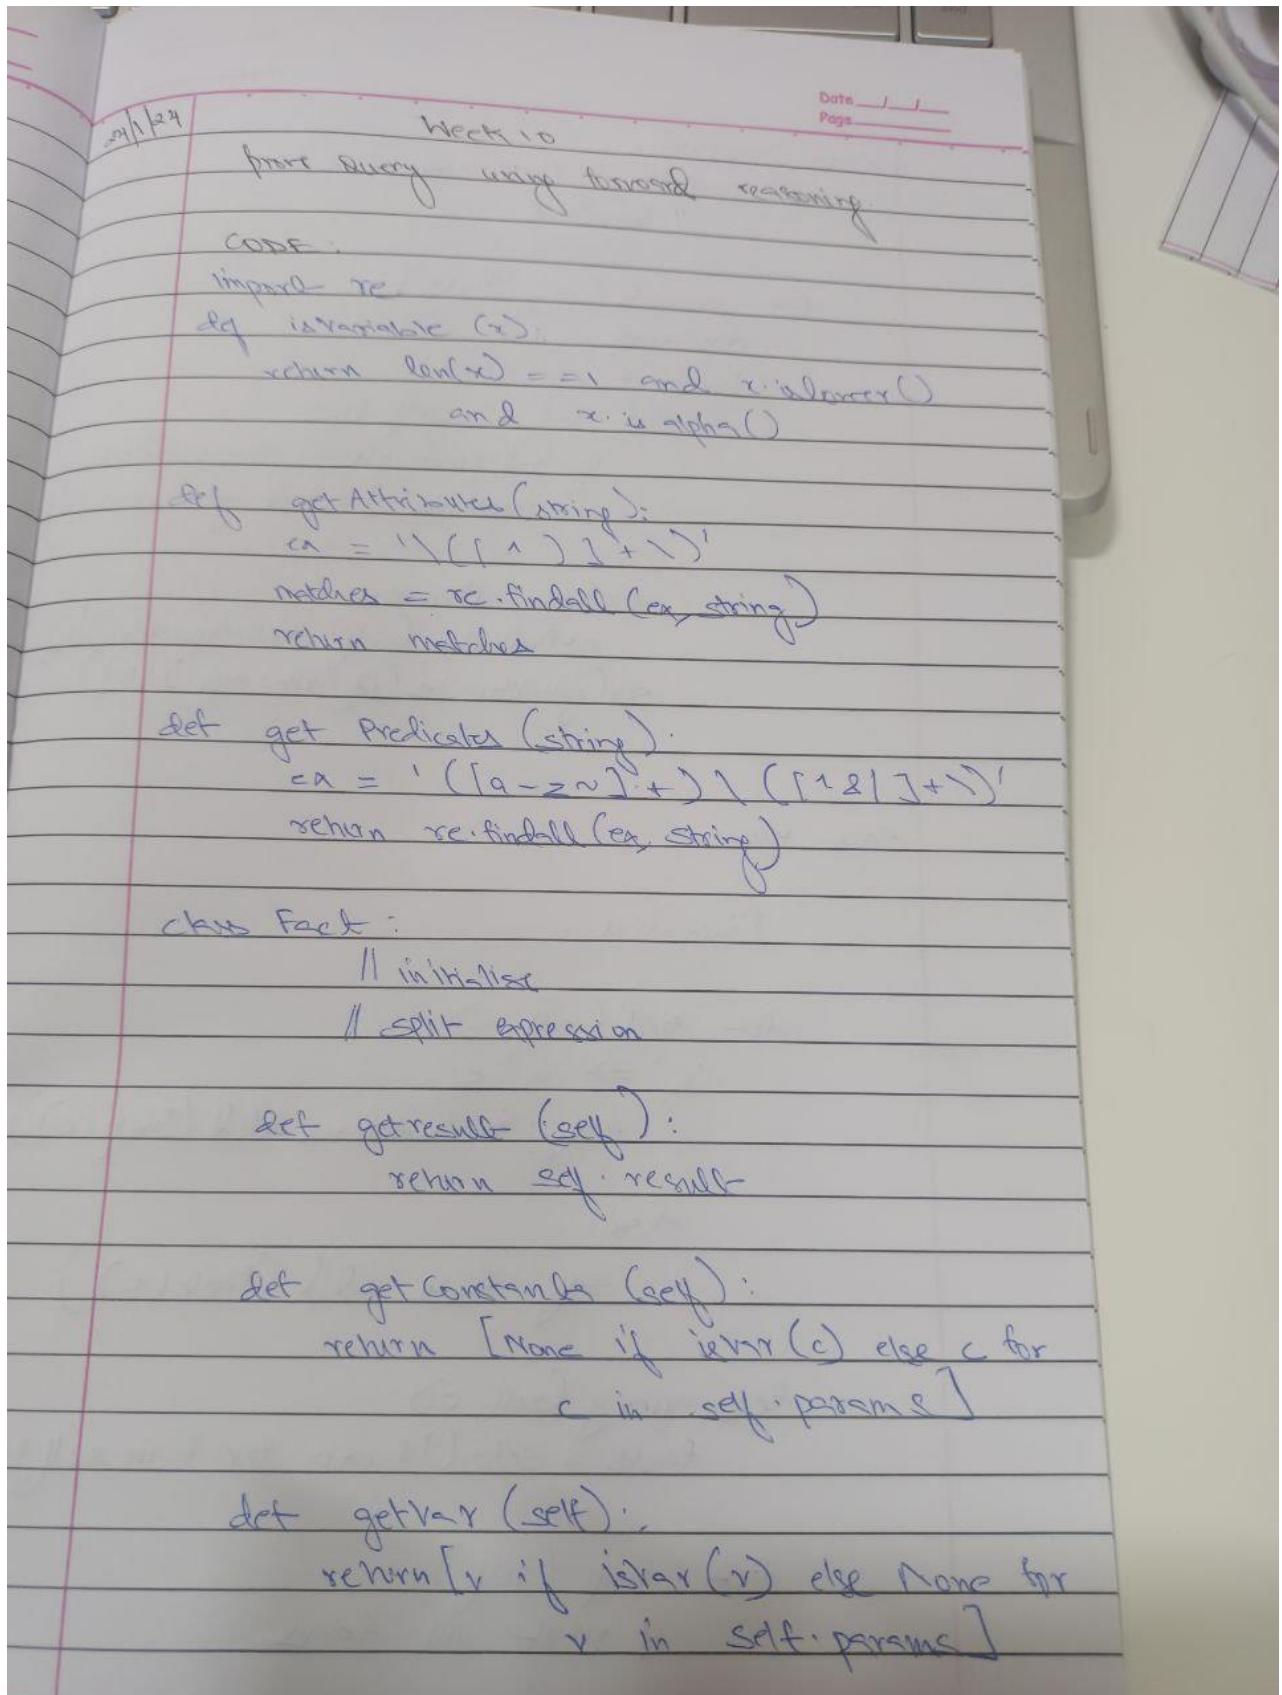 Date __/__/__
Page
24/1/24
Week 10
prove query using forward reasoning
CODE:
import re
def isvariable (x):
return len(x) == 1 and x.islower()
and x.isalpha()
def getAttributes (string):
ex = '\([^)]+\)'
matches = re.findall (ex, string)
return matches
def get Predicates (string):
ex = '([a-z~]+)\([^&|]+\)'
return re.findall (ex, string)
class Fact :
// initialise
// split expression
def getresult (self) :
return self.result
def getConstants (self) :
return [None if isvar(c) else c for
c in self.params]
def getvar (self):
return [v if isvar(v) else None for
v in self.params]